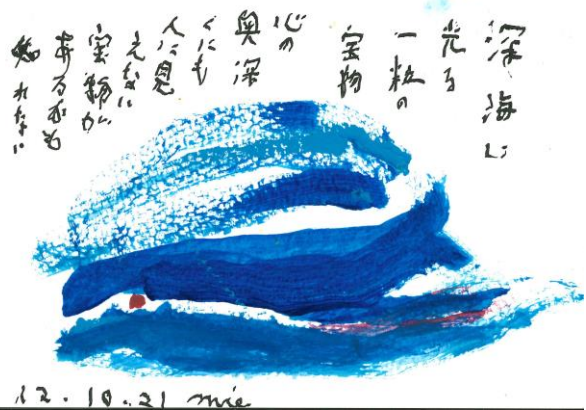 深海に
光る
一粒の
宝物
心の
奥深
くにも
人に見
えない
宝物が
あるかも
知れない
12.10.21 mie